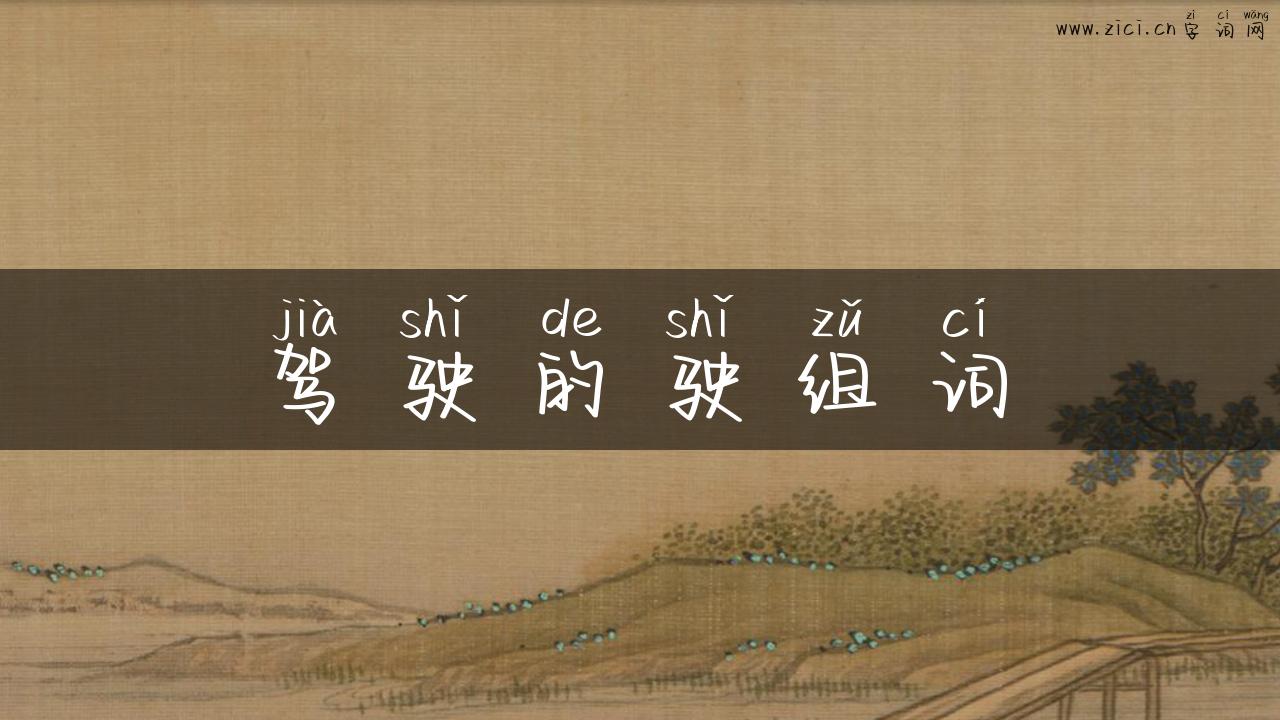 zì cí wǎng
www.zici.cn字词网
jià shǐ de shǐ zǔ cí
驾驶的驶组词